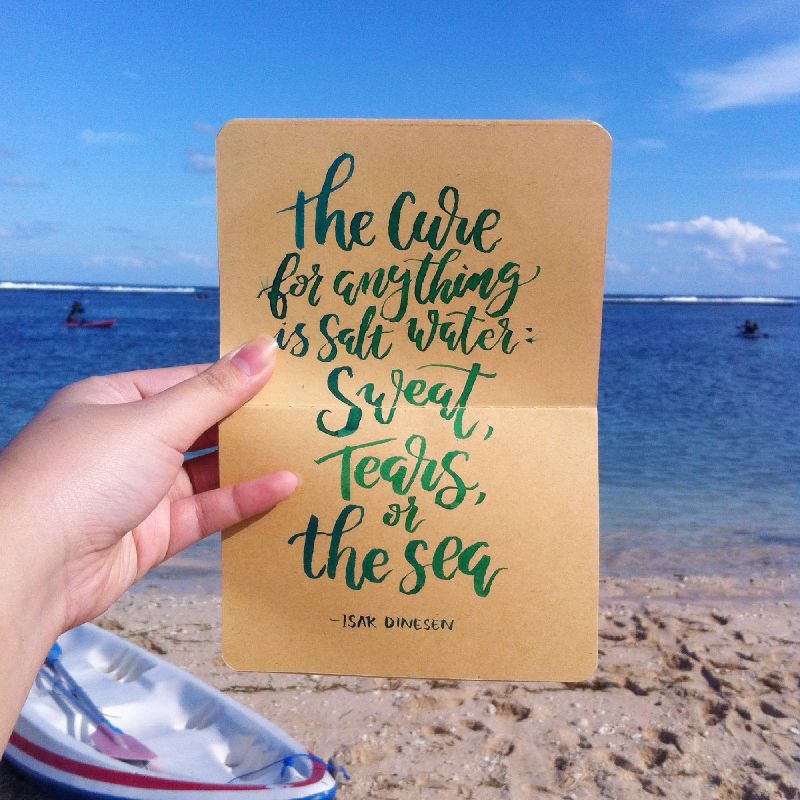 the Cure
for anything
is Salt Water:
Sweat,
Tears,
or
the sea
-ISAK DINESEN